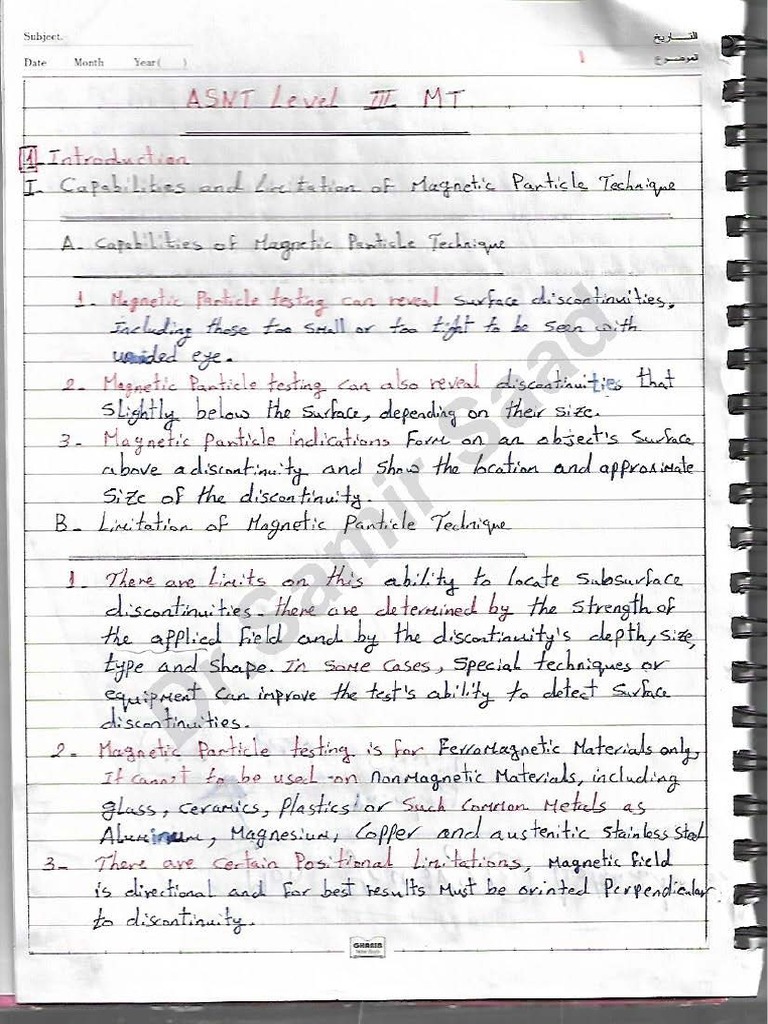 Subject.
التـــاريخ
Date Month Year( )
الموضــوع
1
ASNT Level III MT
1 - Introduction
I. Capabilities and Limitation of Magnetic Particle Technique
A. Capabilities of Magnetic Particle Technique
1. Magnetic Particle testing can reveal surface discontinuities,
Including those too small or too tight to be seen with
unaided eye.
2. Magnetic Particle testing can also reveal discontinuities that
slightly below the surface, depending on their size.
3. Magnetic Particle indications Form on an object's surface
above a discontinuity and show the location and approximate
size of the discontinuity.
B. Limitation of Magnetic Particle Technique
1. There are Limits on this ability to locate subsurface
discontinuities. there are determined by the strength of
the applied field and by the discontinuity's depth, size,
type and shape. In some cases, special techniques or
equipment can improve the test's ability to detect surface
discontinuities.
2. Magnetic Particle testing is for FerroMagnetic Materials only,
It cannot to be used on nonMagnetic Materials, including
glass, ceramics, plastics or such Common Metals as
Aluminum, Magnesium, Copper and austenitic stainless steel
3. There are certain Positional Limitations, Magnetic field
is directional and for best results Must be orinted Perpendicular
to discontinuity.
GHASIB
Note Book
Dr Samir Saad